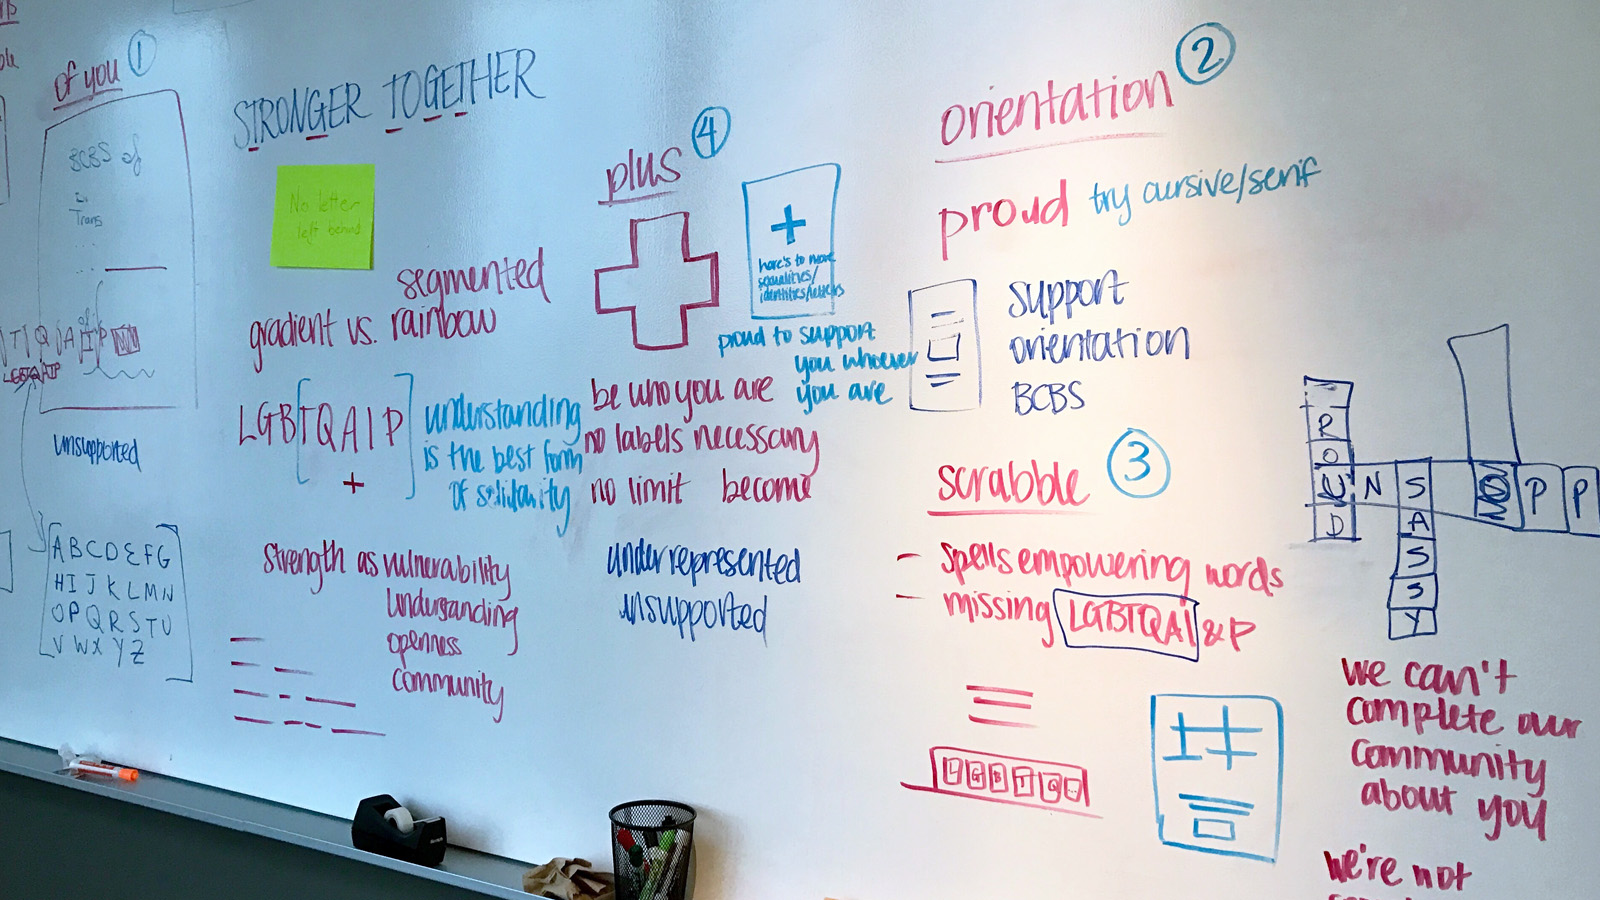 of you 1
BCBS of
Trans
T Q A I P
LGBTQAIP
unsupported
A B C D E F G
H I J K L M N
O P Q R S T U
V W X Y Z
STRONGER TOGETHER
No letter
left behind
segmented
gradient vs. rainbow
LGBTQAIP
+
understanding
is the best form
of solidarity
strength as vulnerability
Understanding
openness
community
plus 4
+
here's to more
sexualities/
identities/letters
proud to support
you whoever
you are
be who you are
no labels necessary
no limit become
underrepresented
unsupported
orientation 2
proud try cursive/serif
support
orientation
BCBS
scrabble 3
- spells empowering words
- missing LGBTQAI & P
L G B T Q ..
R
O
U N S P P
D A
S
S
Y
we can't
complete our
community
about you
we're not